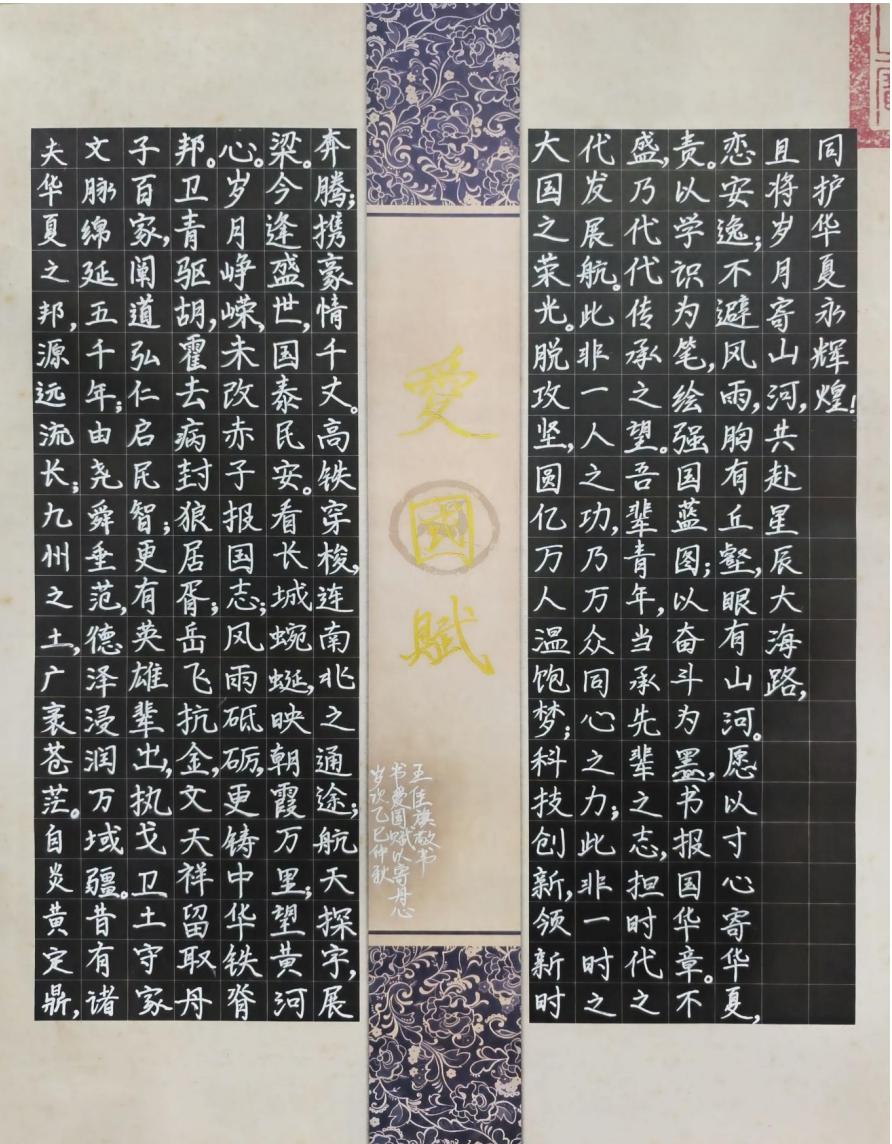 愛國賦
夫华夏之邦,源远流长;九州之土,广袤苍茫。自炎黄定鼎,
文脉绵延五千年;由尧舜垂范,德泽浸润万域疆。昔有诸
子百家,阐道弘仁启民智;更有英雄辈出,执戈卫土守家
邦。卫青驱胡,霍去病封狼居胥;岳飞抗金,文天祥留取丹
心。岁月峥嵘,未改赤子报国志;风雨砥砺,更铸中华铁脊
梁。今逢盛世,国泰民安。看长城蜿蜒,映朝霞万里;望黄河
奔腾;携豪情千丈。高铁穿梭,连南北之通途;航天探宇,展
大国之荣光。脱攻坚,圆亿万人温饱梦;科技创新,领新时
代发展航。此非一人之功,乃万众同心之力;此非一时之
盛,乃代代传承之望。吾辈青年,当承先辈之志,担时代之
责。以学识为笔,绘强国蓝图;以奋斗为墨,书报国华章。不
恋安逸;不避风雨,胸有丘壑,眼有山河。愿以寸心寄华夏,
且将岁月寄山河,共赴星辰大海路,
同护华夏永辉煌!
岁次乙巳仲秋
书爱国赋以寄丹心
王佳旗敬书